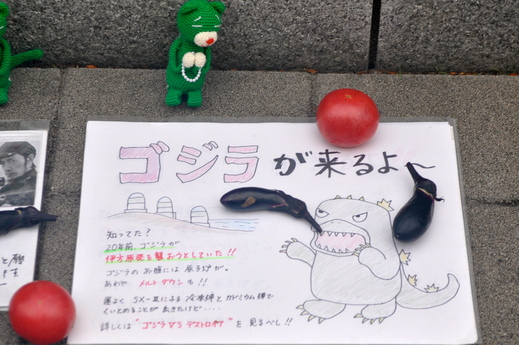 ゴジラが来るよ〜
知ってた?
20年前、ゴジラが
伊方原発を襲おうとしていた!!
ゴジラのお腹には原子炉が。
あわや メルトダウンも!!
運よく SX-Ⅲによる冷凍弾とカドミウム弾で
くいとめることが出来たけど・・・・
詳しくは "ゴジラVSデストロイア" を見るべし!!